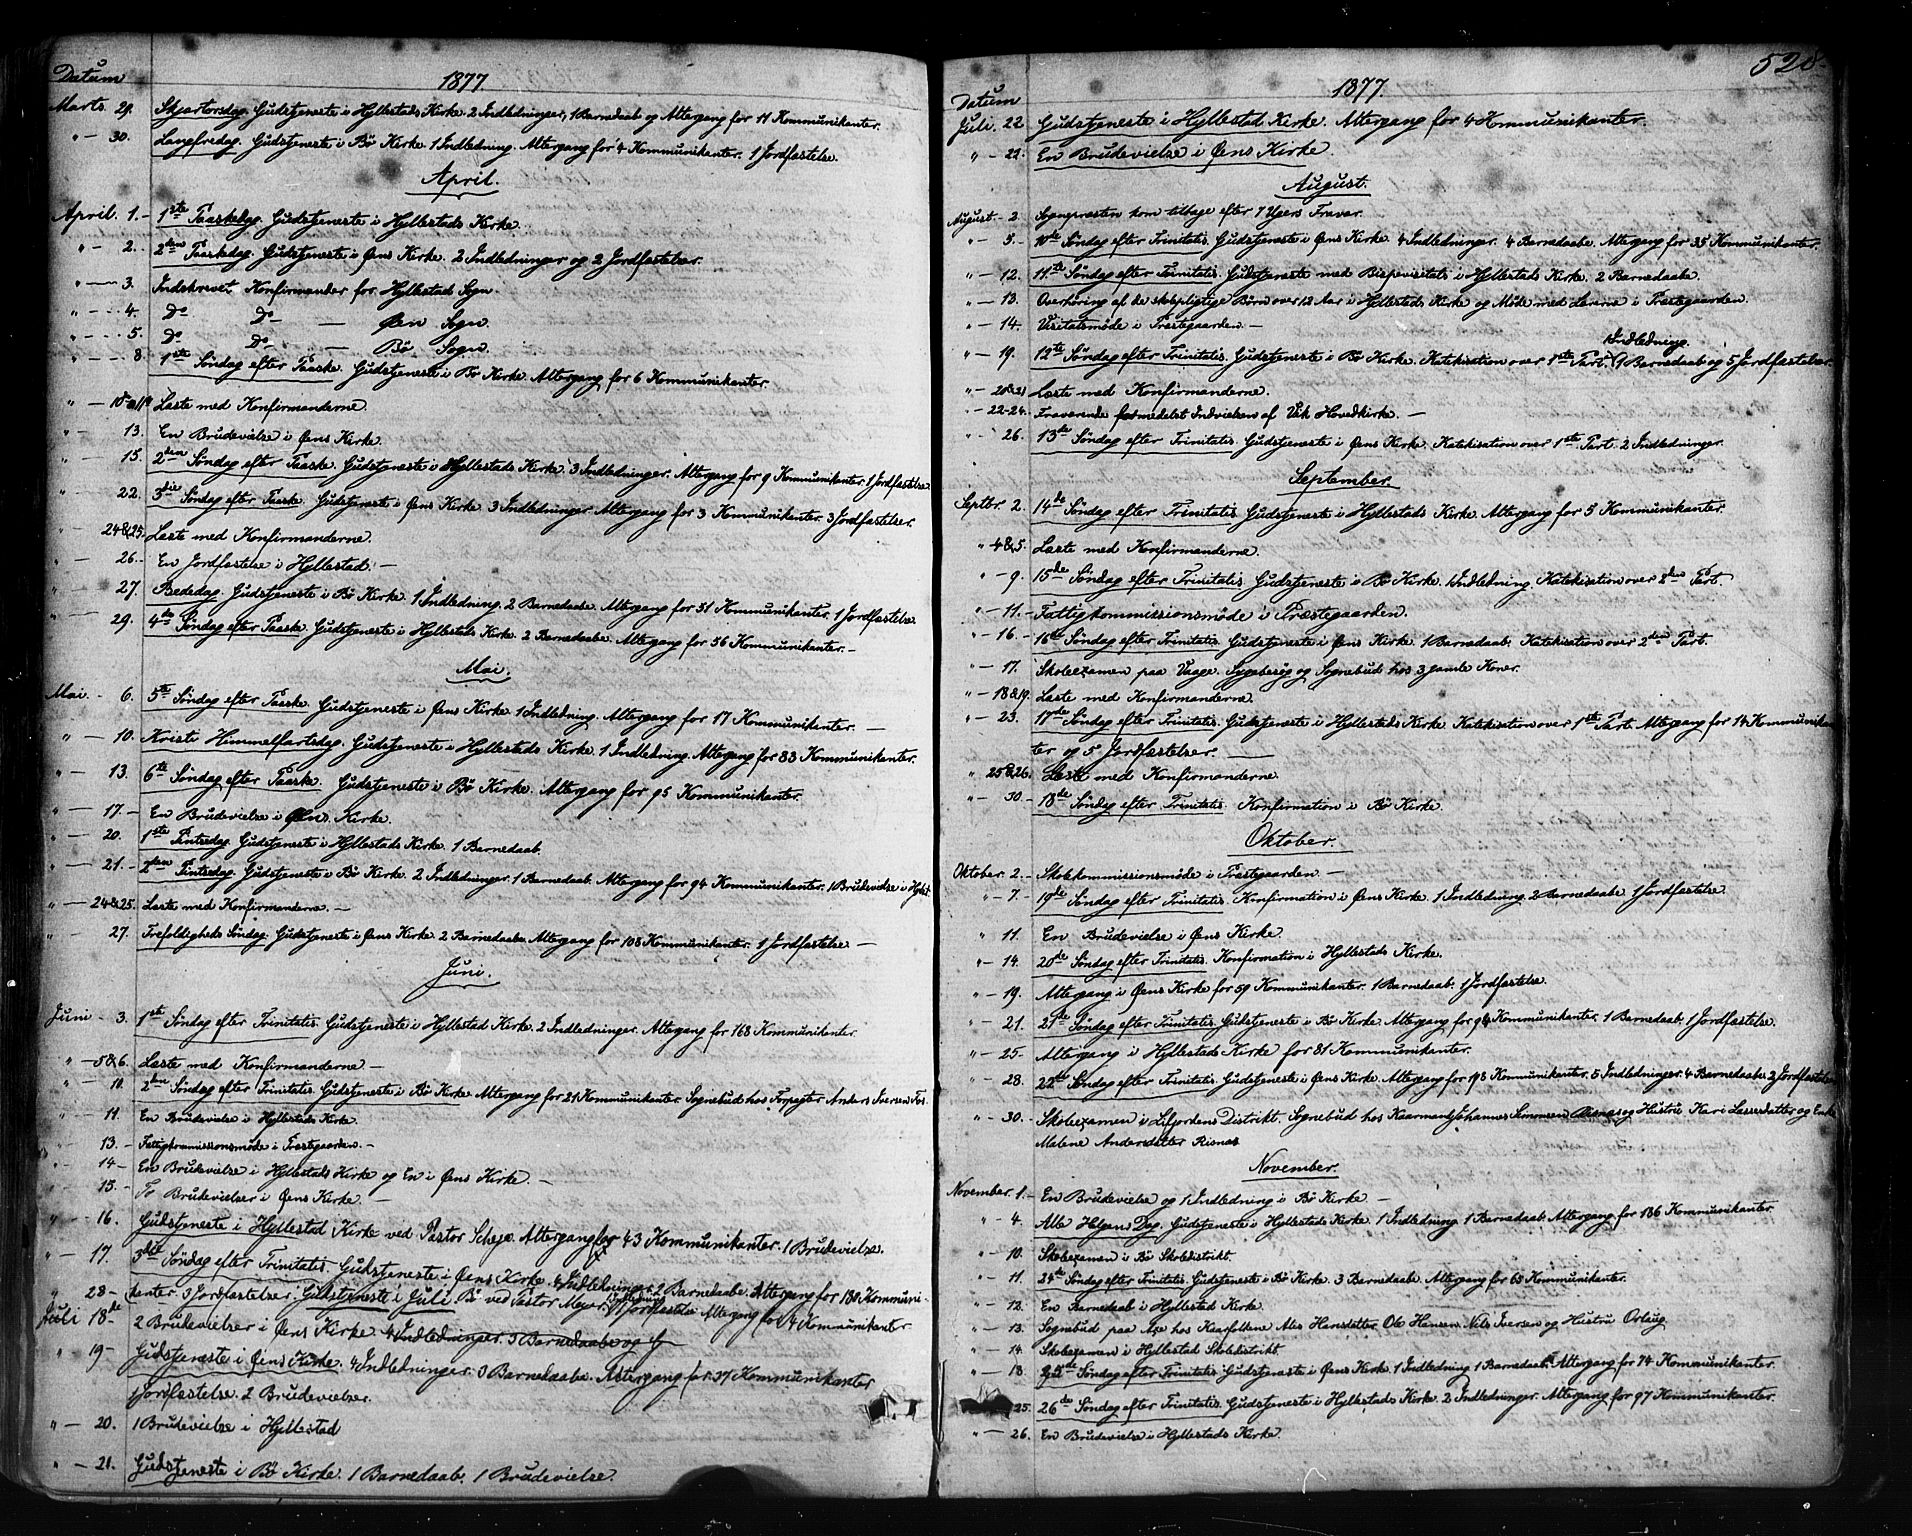 Datum
1877
Marts. 29. Skjærtorsdag. Gudstjeneste i Hyllestads Kirke. 2 Indledninger, 1 Barnedaab og Altergang for 11 Kommunikanter.
" — 30. Langfredag. Gudstjeneste i Bø Kirke. 1 Indledning. Altergang for 4 Kommunikanter. 1 Jordfæstelse.
April.
April. 1. — 1ste Paaskedag. Gudstjeneste i Hyllestads Kirke.
" — 2. — 2den Paaskedag. Gudstjeneste i Øens Kirke. 2 Indledninger og 2 Jordfæstelser.
" — 3. Indskrevet Konfirmander for Hyllestad Sogn.
" — 4. Do Do — Øen Sogn.
" — 5. Do Do — Bø Sogn.
" — 8. 1ste Søndag efter Paaske. Gudstjeneste i Bø Kirke. Altergang for 6 Kommunikanter.
" — 10 & 11 Læste med Konfirmanderne.
" — 13. En Brudevielse i Øens Kirke.
" — 15. 2den Søndag efter Paaske. Gudstjeneste i Hyllestads Kirke. 3 Indledninger. Altergang for 9 Kommunikanter. 1 Jordfæstelse.
" — 22. 3die Søndag efter Paaske. Gudstjeneste i Øens Kirke. 3 Indledninger. Altergang for 3 Kommunikanter. 3 Jordfæstelser.
" — 24 & 25. Læste med Konfirmanderne.
" — 26. En Jordfæstelse i Hyllestad. —
" — 27. Bededag. Gudstjeneste i Bø Kirke. 1 Indledning. 2 Barnedaabe. Altergang for 51 Kommunikanter. 1 Jordfæstelse
" — 29. 4de Søndag efter Paaske. Gudstjeneste i Hyllestads Kirke. 2 Barnedaabe. Altergang for 56 Kommunikanter. —
Mai.
Mai. — 6. 5te Søndag efter Paaske. Gudstjeneste i Øens Kirke. 1 Indledning. Altergang for 17 Kommunikanter. —
" — 10. Kristi Himmelfartsdag. Gudstjeneste i Hyllestads Kirke. 1 Indledning. Altergang for 83 Kommunikanter.
" — 13. 6te Søndag efter Paaske. Gudstjeneste i Bø Kirke. Altergang for 95 Kommunikanter.
" — 17. — En Brudevielse i Øens Kirke.
" — 20. 1ste Pintsedag. Gudstjeneste i Hyllestads Kirke. 1 Barnedaab.
" — 21. — 2den Pintsedag. Gudstjeneste i Bø Kirke. 2 Indledninger. 1 Barnedaab. Altergang for 94 Kommunikanter. 1 Brudevielse i Hylst.
" — 24 & 25. Læste med Konfirmanderne. —
" — 27. Trefoldigheds Søndag. Gudstjeneste i Øens Kirke. 2 Barnedaabe. Altergang for 108 Kommunikanter. 1 Jordfæstelse —
Juni.
Juni — 3. 1ste Søndag efter Trinitatis. Gudstjeneste i Hyllestad Kirke. 2 Indledninger. Altergang for 168 Kommunikanter.
" — 5 & 6. Læste med Konfirmanderne. —
" — 10. 2den Søndag efter Trinitatis. Gudstjeneste i Bø Kirke. Altergang for 21 Kommunikanter. Sognebud hos Forpagter Anders Iversen Fos.
" — 11. En Brudevielse i Hyllestads Kirke.
" — 13. Fattigkommissionsmøde i Præstegaarden. —
" — 14 — En Brudevielse i Hyllestads Kirke og En i Øens Kirke. —
" — 15. — To Brudevielser i Øens Kirke. —
" — 16. Gudstjeneste i Hyllestad Kirke ved Pastor . Altergang for 43 Kommunikanter. 1 Brudevielse.
" — 17. 3die Søndag efter Trinitatis. Gudstjeneste i Øens Kirke. 4 Indledninger 2 Barnedaabe. Altergang for 180 Kommuni-
" 28 — kanter. 3 Jordfæstelser. Gudstjeneste i Juli. Bø ved Pastor Meyer. 1 Indledning 1 Jordfæstelse Altergang for 4 Kommunikanter
Juli 18de 2 Brudevielser i Øens Kirke. 4 Indledninger. 3 Barnedaabe og G
" — 19 — Gudstjeneste i Øens Kirke. 4 Indledninger. 3 Barnedaabe. Altergang for 37 Kommunikanter
1 Jordfæstelse. 2 Brudevielser.
" — 20. 1 Brudevielse i Hyllestad
" — 21. Gudstjeneste i Bø Kirke. 1 Barnedaab. 1 Brudevielse.
528.
1877.
Datum
Juli. 22 Gudstjeneste i Hyllestad Kirke. Altergang for 4 Kommunikanter.
" — 22. En Brudevielse i Øens Kirke.
August.
August — 2. Sognepræsten kom tilbage efter 7 Ugers Fravær.
" — 5. — 10de Søndag efter Trinitatis. Gudstjeneste i Øens Kirke. 4 Indledninger. 4 Barnedaabe. Altergang for 35 Kommunikanter.
" — 12. 11te Søndag efter Trinitatis. Gudstjeneste med Bispevisitats i Hyllestads Kirke. 2 Barnedaabe.
" — 13. Overhøring af de skolepligtige Børn over 12 Aar i Hyllestads Kirke og Møde med Lærerne i Præstegaarden.
" — 14. Visitatsmøde i Præstegaarden. —
1 Indledning.
" — 19. 12te Søndag efter Trinitatis. Gudstjeneste i Bø Kirke. Katekisation over 1ste Part. 9 Barnedaab og 5 Jordfæstelser.
" — 20 & 21 Læste med Konfirmanderne.
" — 22-24. Fraværende formedelst Indvielsen af Vik Hovedkirke. —
" — 26. 13de Søndag efter Trinitatis. Gudstjeneste i Øens Kirke. Katekisation over 1ste Part. 2 Indledninger.
September.
Septbr. 2. 14de Søndag efter Trinitatis Gudstjeneste i Hyllestads Kirke. Altergang for 5 Kommunikanter.
" 4 & 5. Læste med Konfirmanderne.
" — 9. 15de Søndag efter Trinitatis. Gudstjeneste i Bø Kirke. 1 Indledning. Katekisation over 2den Part.
" — 11. — Fattigkommissionsmøde i Præstegaarden.
" — 16. — 16de Søndag efter Trinitatis Gudstjeneste i Øens Kirke. 1 Barnedaab. Katekisation over 2den Part.
" — 17. Skoleexamen paa Vaage. Sygebesøg og Sognebud hos 3 gamle Koner.
" — 18 & 19. Læste med Konfirmanderne.
" — 23. 17de Søndag efter Trinitatis. Gudstjeneste i Hyllestads Kirke. Katekisation over 1ste Part. Altergang for 14 Kommunikan
ter og 5 Jordfæstelser. —
" 25 & 26. Læste med Konfirmanderne.
" — 30. — 18de Søndag efter Trinitatis. Konfirmation i Bø Kirke.
Oktober.
Oktober. 2. — Skolekommissionsmøde i Præstegaarden. —
" — 7. — 19de Søndag efter Trinitatis. Konfirmation i Øens Kirke. 1 Indledning. 2 Barnedaabe. 1 Jordfæstelse.
" 11. En Brudevielse i Øens Kirke.
" — 14. 20de Søndag efter Trinitatis. Konfirmation i Hyllestads Kirke.
" — 19. Altergang i Øens Kirke for 59 Kommunikanter. 1 Barnedaab. 1 Jordfæstelse.
" — 21. 21de Søndag efter Trinitatis. Gudstjeneste i Bø Kirke. Altergang for 94 Kommunikanter. 1 Barnedaab. 1 Jordfæstelse.
" — 25. Altergang i Hyllestads Kirke for 81 Kommunikanter.
" — 28. 22de Søndag efter Trinitatis. Gudstjeneste i Øens Kirke. Altergang for 198 Kommunikanter. 5 Indledninger. 4 Barnedaabe. 2 Jordfæstelser
" — 30. Skoleexamen i Lifjordens Distrikt. Sognebud hos Kaarmand Johannes Simonsen Risnes og Hustru Kari Lassesdatter og Enke
Malene Andersdatter Risnes
November.
November. 1. — En Brudevielse og 1 Indledning i Bø Kirke. —
" — 4. Alle Helgens Dag. Gudstjeneste i Hyllestads Kirke. 1 Indledning. 1 Barnedaab. Altergang for 186 Kommunikanter.
" — 10. Skoleexamen i Bø Skoledistrikt.
" — 11. 24de Søndag efter Trinitatis. Gudstjeneste i Bø Kirke. 3 Barnedaabe. Altergang for 65 Kommunikanter.
" — 12. En Barnedaab i Hyllestad Kirke.
" — 13. Sognebud paa hos Kaarfolkene Ales Hansdatter, Ole Hansen, Nils Iversen og Hustru Orlaug.
" — 14. Skoleexamen i Hyllestad Skoledistrikt.
" — 18. 25de Søndag efter Trinitatis. Gudstjeneste i Øens Kirke. 1 Indledning 1 Barnedaab. Altergang for 74 Kommunikanter.
25. 26de Søndag efter Trinitatis. Gudstjeneste i Hyllestads Kirke. 2 Indledninger. Altergang for 97 Kommunikanter.
" — 26. En Brudevielse i Hyllestads Kirke.